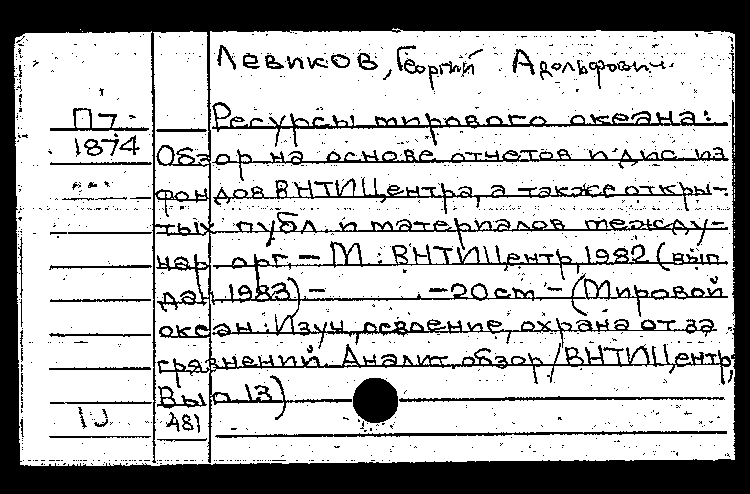 Левиков, Георгий Адольфович.
П7-
1874
Ресурсы мирового океана:
Обзор на основе отчетов и дис. из
фондов ВНТИЦентра, а также откры-
тых публ. и материалов между-
нар. орг. - М.: ВНТИЦентр, 1982 (вып.
дан. 1983) - . - 20 см - (Мировой
океан: Изуч., освоение, охрана от за
грязнений. Аналит. обзор / ВНТИЦентр;
Вып. 13)
481